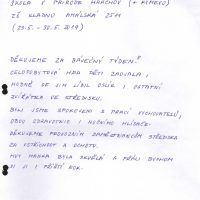 ŠKOLA V PŘÍRODĚ HRACHOV (+ KLIMEO)
ZŠ KLADNO AMÁLSKÁ 2511
(25.5. - 30.5. 2014)
DĚKUJEME ZA BÁJEČNÝ TÝDEN!
CELOPOBYTOVÁ HRA DĚTI ZAUJALA,
HODNĚ SE JIM LÍBIL OSLÍK I OSTATNÍ
ZVÍŘÁTKA VE STŘEDISKU.
BYLI JSME SPOKOJENI S PRACÍ VYCHOVATELŮ,
OBOU ZDRAVOTNIC I NOČNÍHO HLÍDAČE.
DĚKUJEME PROVOZNÍM ZAMĚSTNANCŮM STŘEDISKA
ZA VSTŘÍCNOST A OCHOTU.
HRA BYLA SKVĚLÁ A PŘÁLI BYCHOM
SI JI I PŘÍŠTÍ ROK.